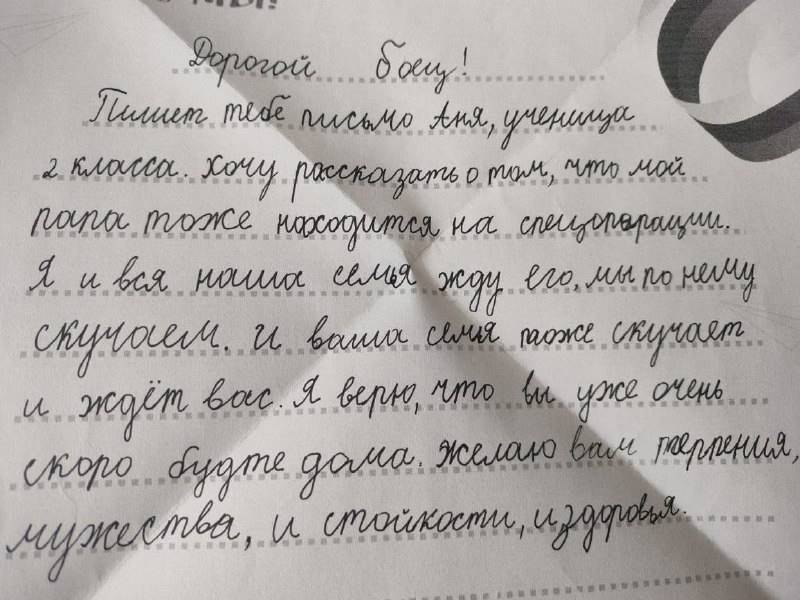 Дорогой боец!
Пишет тебе письмо Аня, ученица
2 класса. Хочу рассказать о том, что мой
папа тоже находится на спецоперации.
Я и вся наша семья жду его, мы по нему
скучаем. И ваша семья тоже скучает
и ждёт вас. Я верю, что вы уже очень
скоро будте дома. Желаю вам терпения,
мужества, и стойкости, и здоровья.